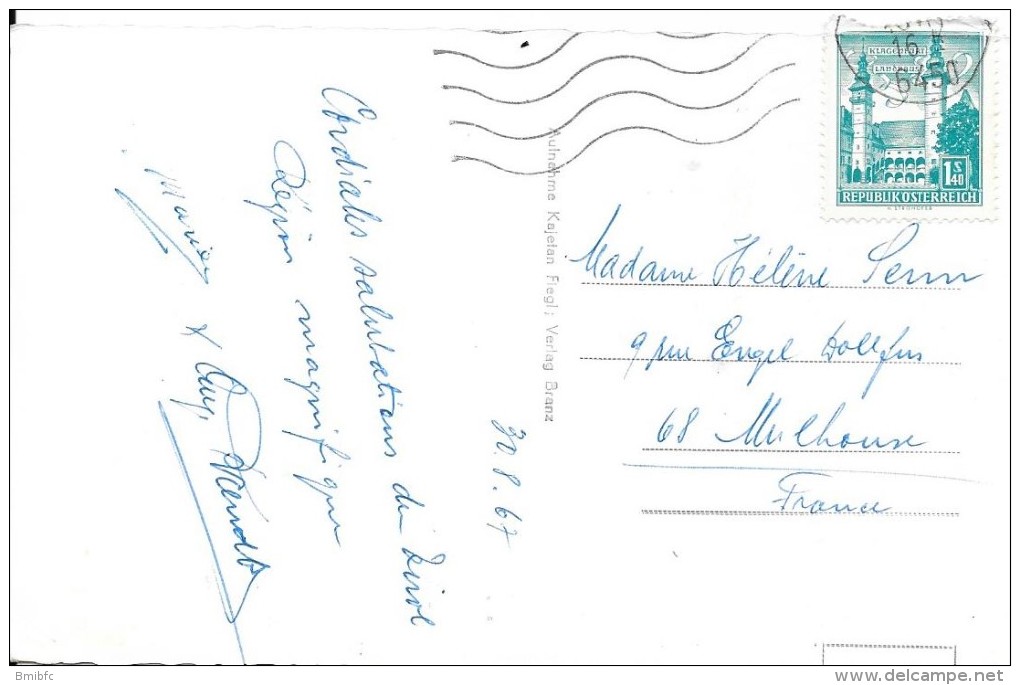 Cordiales salutations du Tirol
Région magnifique
Marie
& Aug.
30.8.67
Aufnahme Kajetan Fiegl; Verlag Branz
16
6450
KLAGENFURT
LANDHAUS
1 S 40
REPUBLIK ÖSTERREICH
Madame Hélène Senn
9 rue Engel Dollfus
68 Mulhouse
France
Bmibfc
www.delcampe.net